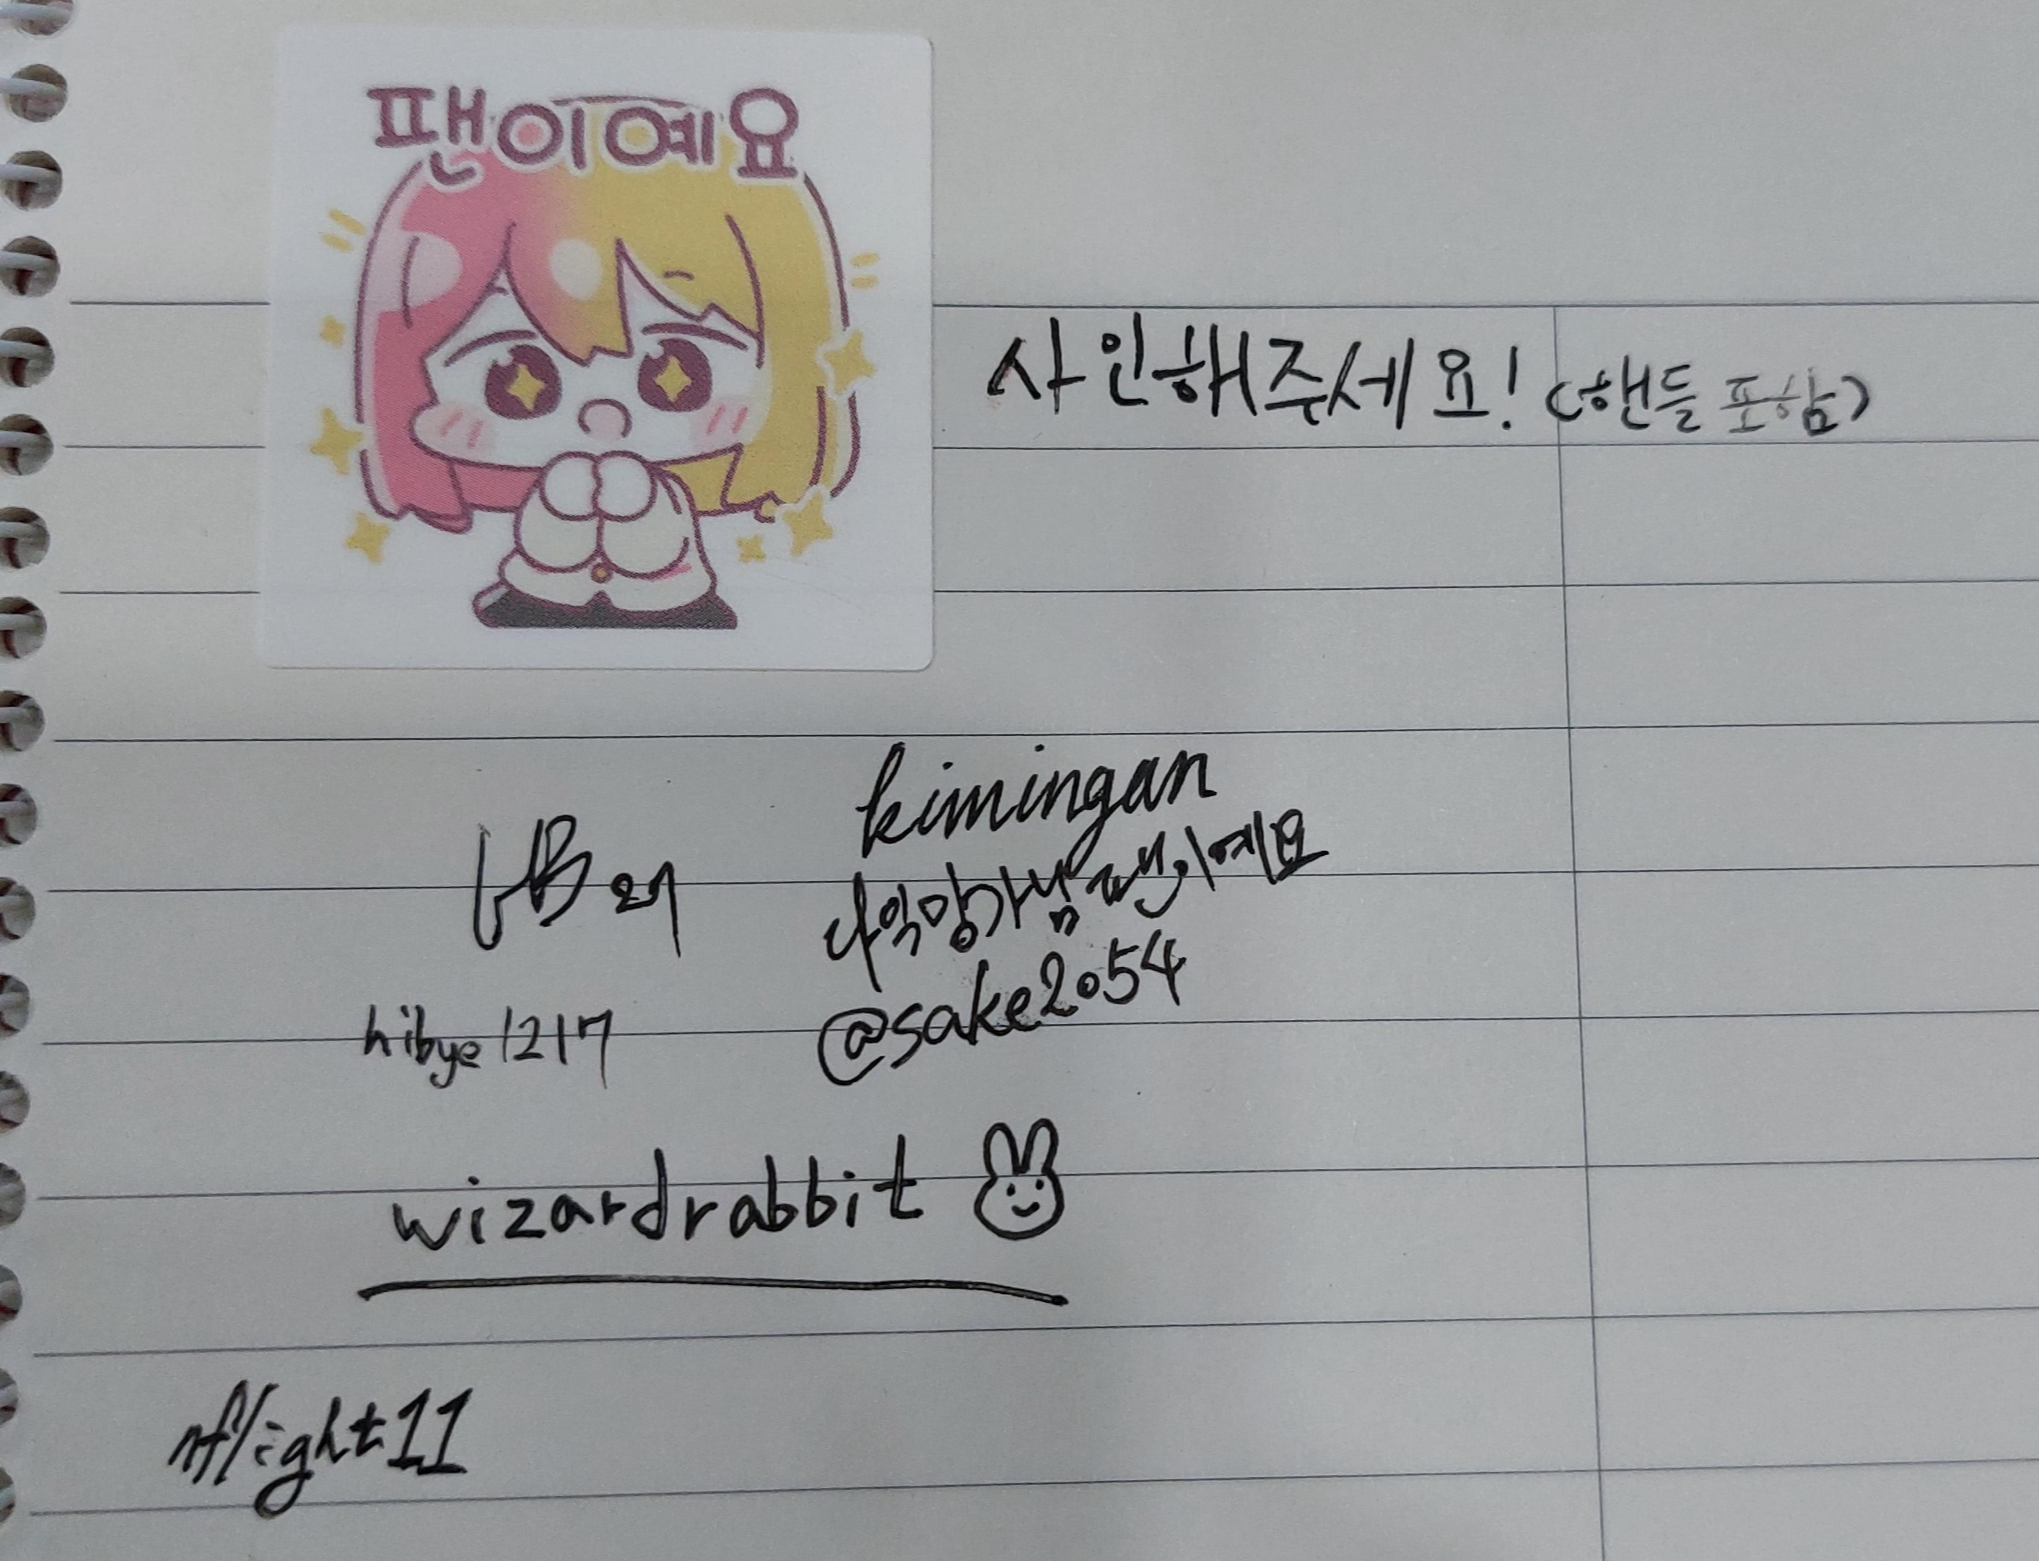 팬이예요
사인해주세요! (핸들 포함)
kimingan
나악망가님 팬이예요
@sake2054
hibye1217
wizardrabbit
nflight11